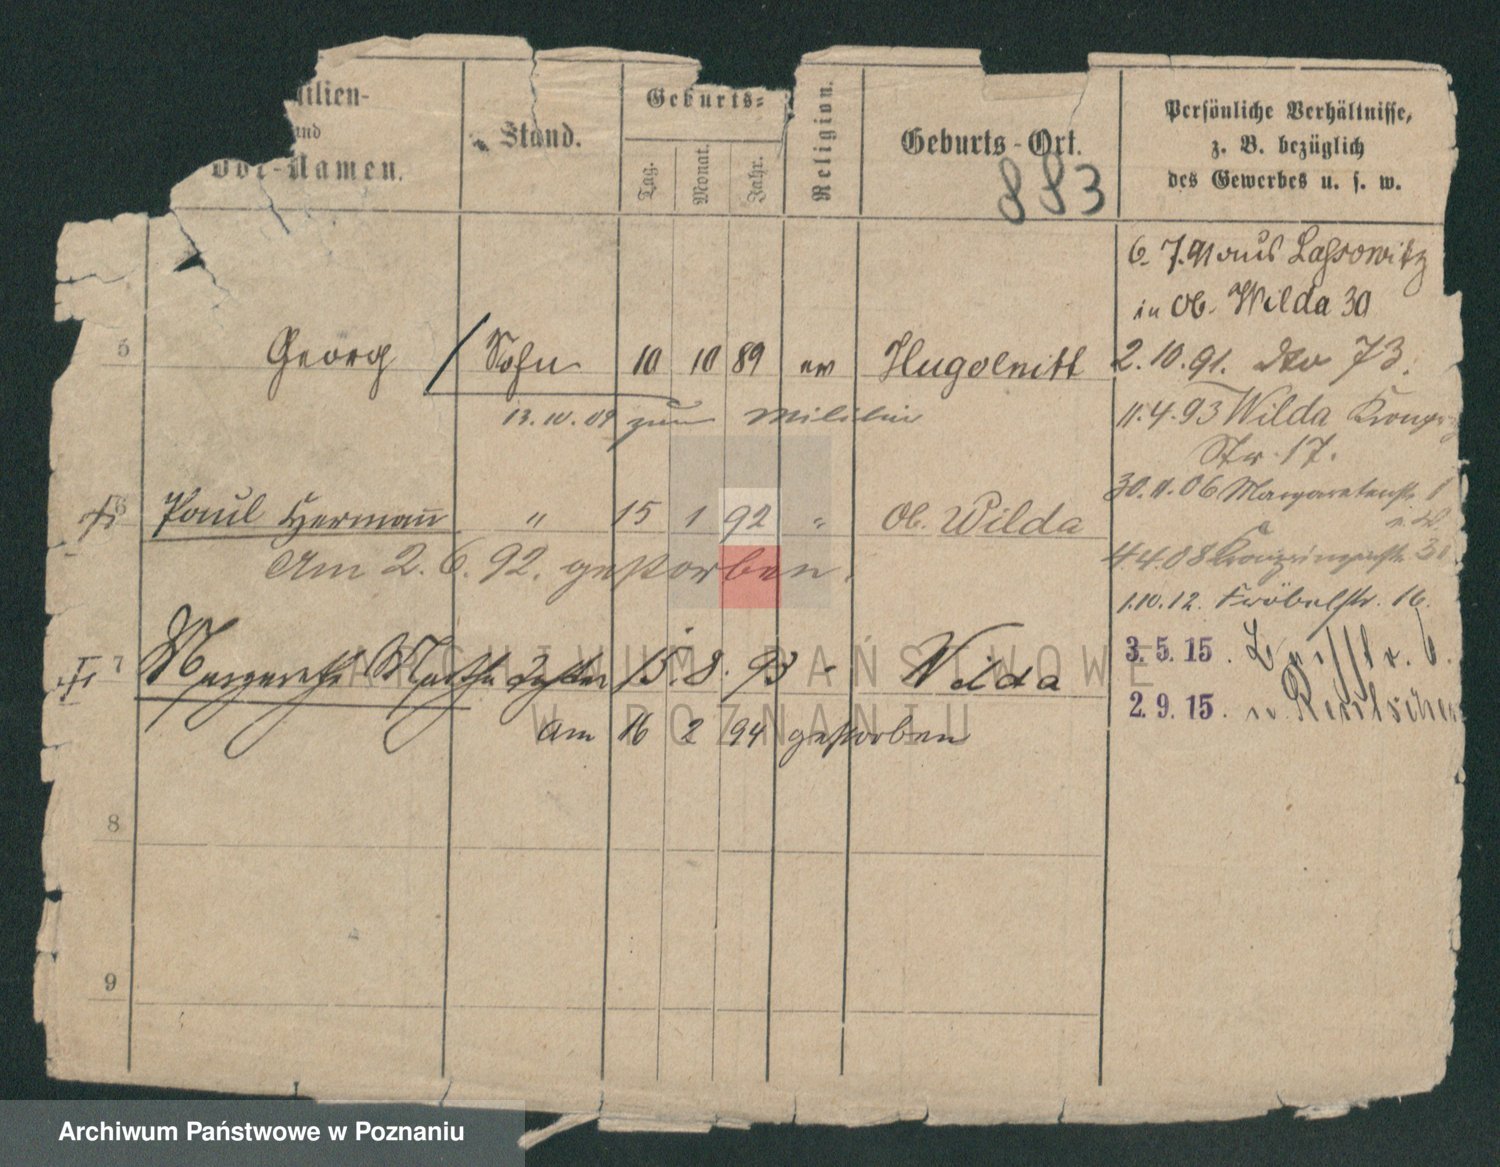 milien-
und
Vor-Namen.
Stand.
Geburts-
Tag.
Monat.
Jahr.
Religion.
Geburts-Ort.
883
Persönliche Verhältnisse,
z. B. bezüglich
des Gewerbes u. s. w.
6. 7. 91 aus Lassowitz
in Ob. Wilda 30
5 Georg / Sohn 10 10 89 ev
2. 10. 91. dto 73.
13. 10. 09 zum Militär
11. 4. 93 Wilda
Str. 17.
6 Paul Hermann " 15 1 92 " Ob. Wilda
30. 11. 06 Margaretenstr
Am 2. 6. 92. gestorben.
4. 4. 08
1. 10. 12. Fröbelstr. 16.
7 Margarethe Martha 15. 8. 93 - Wilda
3. 5. 15.
2. 9. 15. n. Rentschen
am 16 2 94 gestorben
8
9
ARCHIWUM PAŃSTWOWE
W POZNANIU
Archiwum Państwowe w Poznaniu